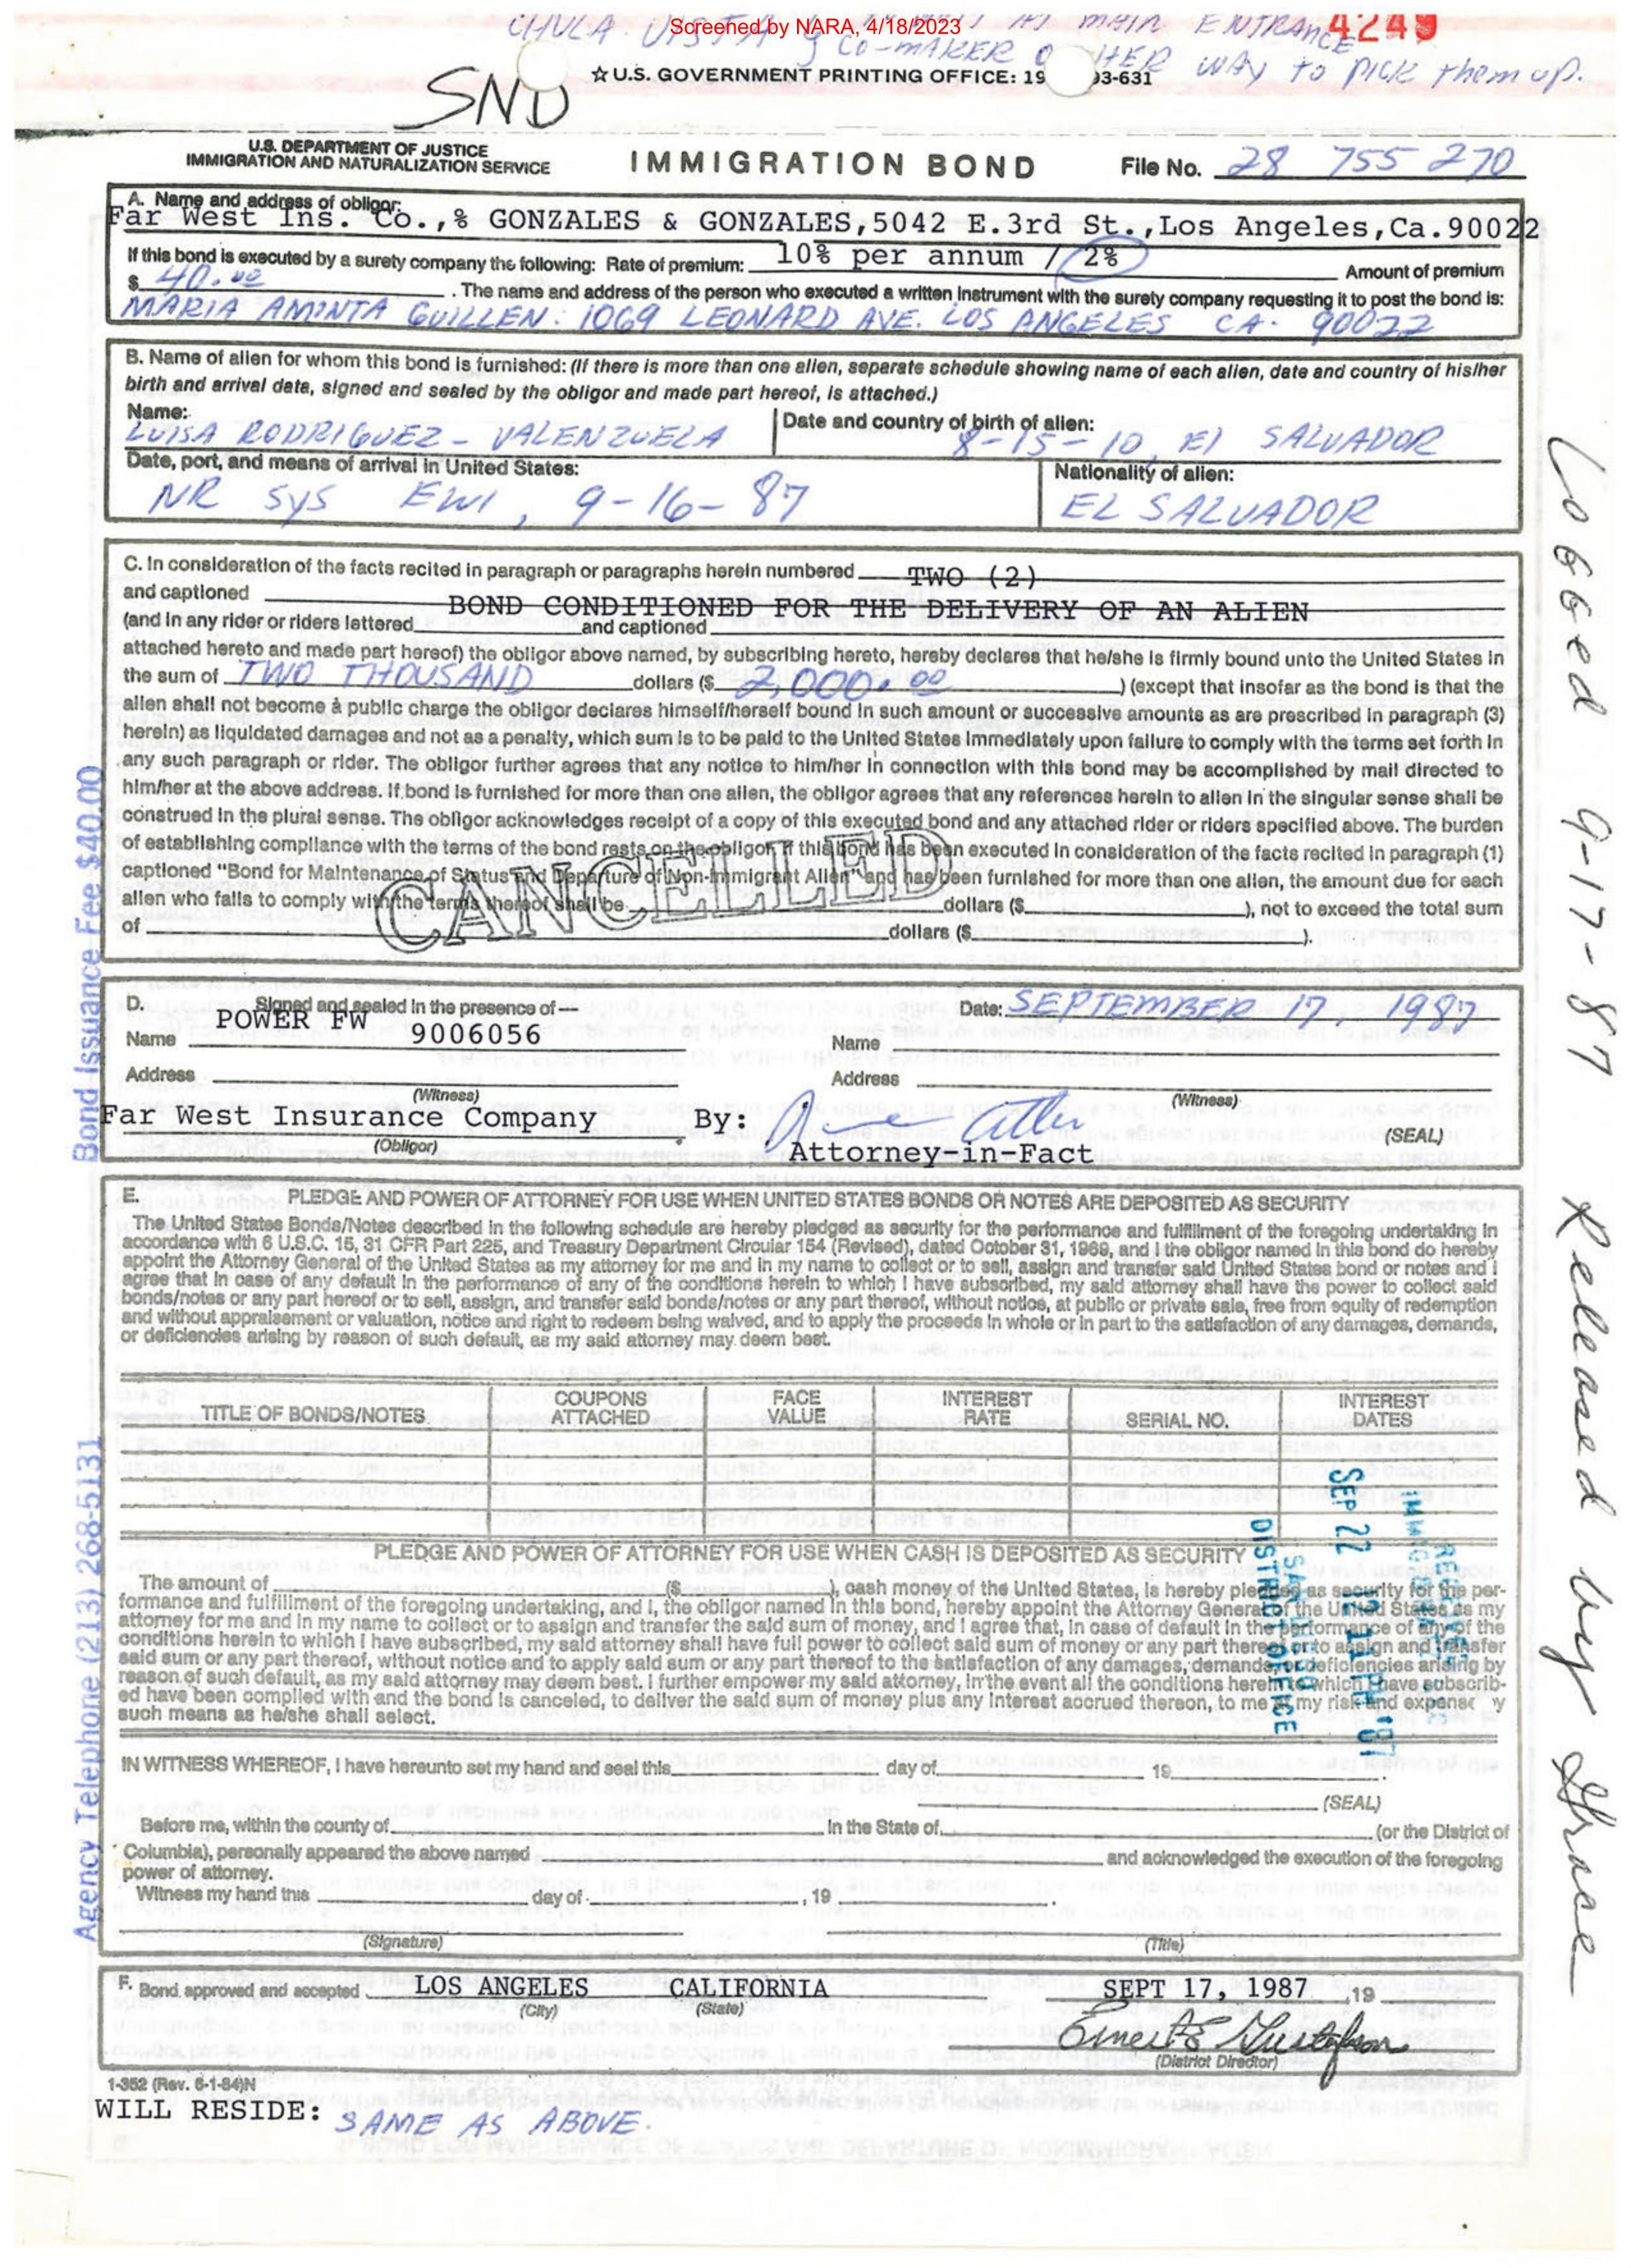 Screened by NARA, 4/18/2023
4249
CHULA VISTA AT MAIN ENTRANCE
CO-MAKER HER WAY TO PICK them up.
☆ U.S. GOVERNMENT PRINTING OFFICE: 19 93-631
SND
U.S. DEPARTMENT OF JUSTICE
IMMIGRATION AND NATURALIZATION SERVICE
IMMIGRATION BOND
File No. 28 755 270
A. Name and address of obligor:
Far West Ins. Co.,% GONZALES & GONZALES,5042 E.3rd St.,Los Angeles,Ca.90022
If this bond is executed by a surety company the following: Rate of premium: 10% per annum / 2% Amount of premium
$ 40.00 . The name and address of the person who executed a written instrument with the surety company requesting it to post the bond is:
MARIA AMINTA GUILLEN: 1069 LEONARD AVE. LOS ANGELES CA. 90022
B. Name of alien for whom this bond is furnished: (If there is more than one alien, separate schedule showing name of each alien, date and country of his/her
birth and arrival data, signed and sealed by the obligor and made part hereof, is attached.)
Name: LUISA RODRIGUEZ - VALENZUELA
Date and country of birth of alien: 8-15-10, El SALVADOR
Date, port, and means of arrival in United States:
NR SYS EWI, 9-16-87
Nationality of alien:
EL SALVADOR
C. In consideration of the facts recited in paragraph or paragraphs herein numbered TWO (2)
and captioned BOND CONDITIONED FOR THE DELIVERY OF AN ALIEN
(and in any rider or riders lettered and captioned
attached hereto and made part hereof) the obligor above named, by subscribing hereto, hereby declares that he/she is firmly bound unto the United States in
the sum of TWO THOUSAND dollars ($ 2,000.00 ) (except that insofar as the bond is that the
alien shall not become a public charge the obligor declares himself/herself bound in such amount or successive amounts as are prescribed in paragraph (3)
herein) as liquidated damages and not as a penalty, which sum is to be paid to the United States immediately upon failure to comply with the terms set forth in
any such paragraph or rider. The obligor further agrees that any notice to him/her in connection with this bond may be accomplished by mail directed to
him/her at the above address. If bond is furnished for more than one alien, the obligor agrees that any references herein to alien in the singular sense shall be
construed in the plural sense. The obligor acknowledges receipt of a copy of this executed bond and any attached rider or riders specified above. The burden
of establishing compliance with the terms of the bond rests on the obligor. If this bond has been executed in consideration of the facts recited in paragraph (1)
captioned "Bond for Maintenance of Status and Departure of Non-Immigrant Alien" and has been furnished for more than one alien, the amount due for each
alien who fails to comply with the terms thereof shall be dollars ($ ), not to exceed the total sum
of dollars ($ ).
CANCELLED
D. Signed and sealed in the presence of—
Date: SEPTEMBER 17, 1987
POWER FW
Name 9006056
Name
Address
Address
(Witness)
(Witness)
Far West Insurance Company By:
(Obligor)
(SEAL)
Attorney-in-Fact
E. PLEDGE AND POWER OF ATTORNEY FOR USE WHEN UNITED STATES BONDS OR NOTES ARE DEPOSITED AS SECURITY
The United States Bonds/Notes described in the following schedule are hereby pledged as security for the performance and fulfillment of the foregoing undertaking in
accordance with 6 U.S.C. 15, 31 CFR Part 225, and Treasury Department Circular 154 (Revised), dated October 31, 1969, and I the obligor named in this bond do hereby
appoint the Attorney General of the United States as my attorney for me and in my name to collect or to sell, assign and transfer said United States bond or notes and I
agree that in case of any default in the performance of any of the conditions herein to which I have subscribed, my said attorney shall have the power to collect said
bonds/notes or any part hereof or to sell, assign, and transfer said bonds/notes or any part thereof, without notice, at public or private sale, free from equity of redemption
and without appraisement or valuation, notice and right to redeem being waived, and to apply the proceeds in whole or in part to the satisfaction of any damages, demands,
or deficiencies arising by reason of such default, as my said attorney may deem best.
TITLE OF BONDS/NOTES COUPONS ATTACHED FACE VALUE INTEREST RATE SERIAL NO. INTEREST DATES
PLEDGE AND POWER OF ATTORNEY FOR USE WHEN CASH IS DEPOSITED AS SECURITY
The amount of ($ ), cash money of the United States, is hereby pledged as security for the per-
formance and fulfillment of the foregoing undertaking, and I, the obligor named in this bond, hereby appoint the Attorney General of the United States as my
attorney for me and in my name to collect or to assign and transfer the said sum of money, and I agree that, in case of default in the performance of any of the
conditions herein to which I have subscribed, my said attorney shall have full power to collect said sum of money or any part thereof or to assign and transfer
said sum or any part thereof, without notice and to apply said sum or any part thereof to the satisfaction of any damages, demands, or deficiencies arising by
reason of such default, as my said attorney may deem best. I further empower my said attorney, in the event all the conditions herein to which I have subscrib-
ed have been complied with and the bond is canceled, to deliver the said sum of money plus any interest accrued thereon, to me at my risk and expense y
such means as he/she shall select.
IN WITNESS WHEREOF, I have hereunto set my hand and seal this day of 19 .
(SEAL)
Before me, within the county of in the State of (or the District of
Columbia), personally appeared the above named and acknowledged the execution of the foregoing
power of attorney.
Witness my hand this day of , 19 .
(Signature)
(Title)
F. Bond approved and accepted LOS ANGELES CALIFORNIA SEPT 17, 1987 ,19
(City) (State)
Ernest E Gustafson
(District Director)
I-352 (Rev. 6-1-84)N
WILL RESIDE: SAME AS ABOVE.
Bond Issuance Fee $40.00
Agency Telephone (213) 268-5131
Logged 9-17-87 Released by Grace
SEP 22
DISTRICT OFFICE